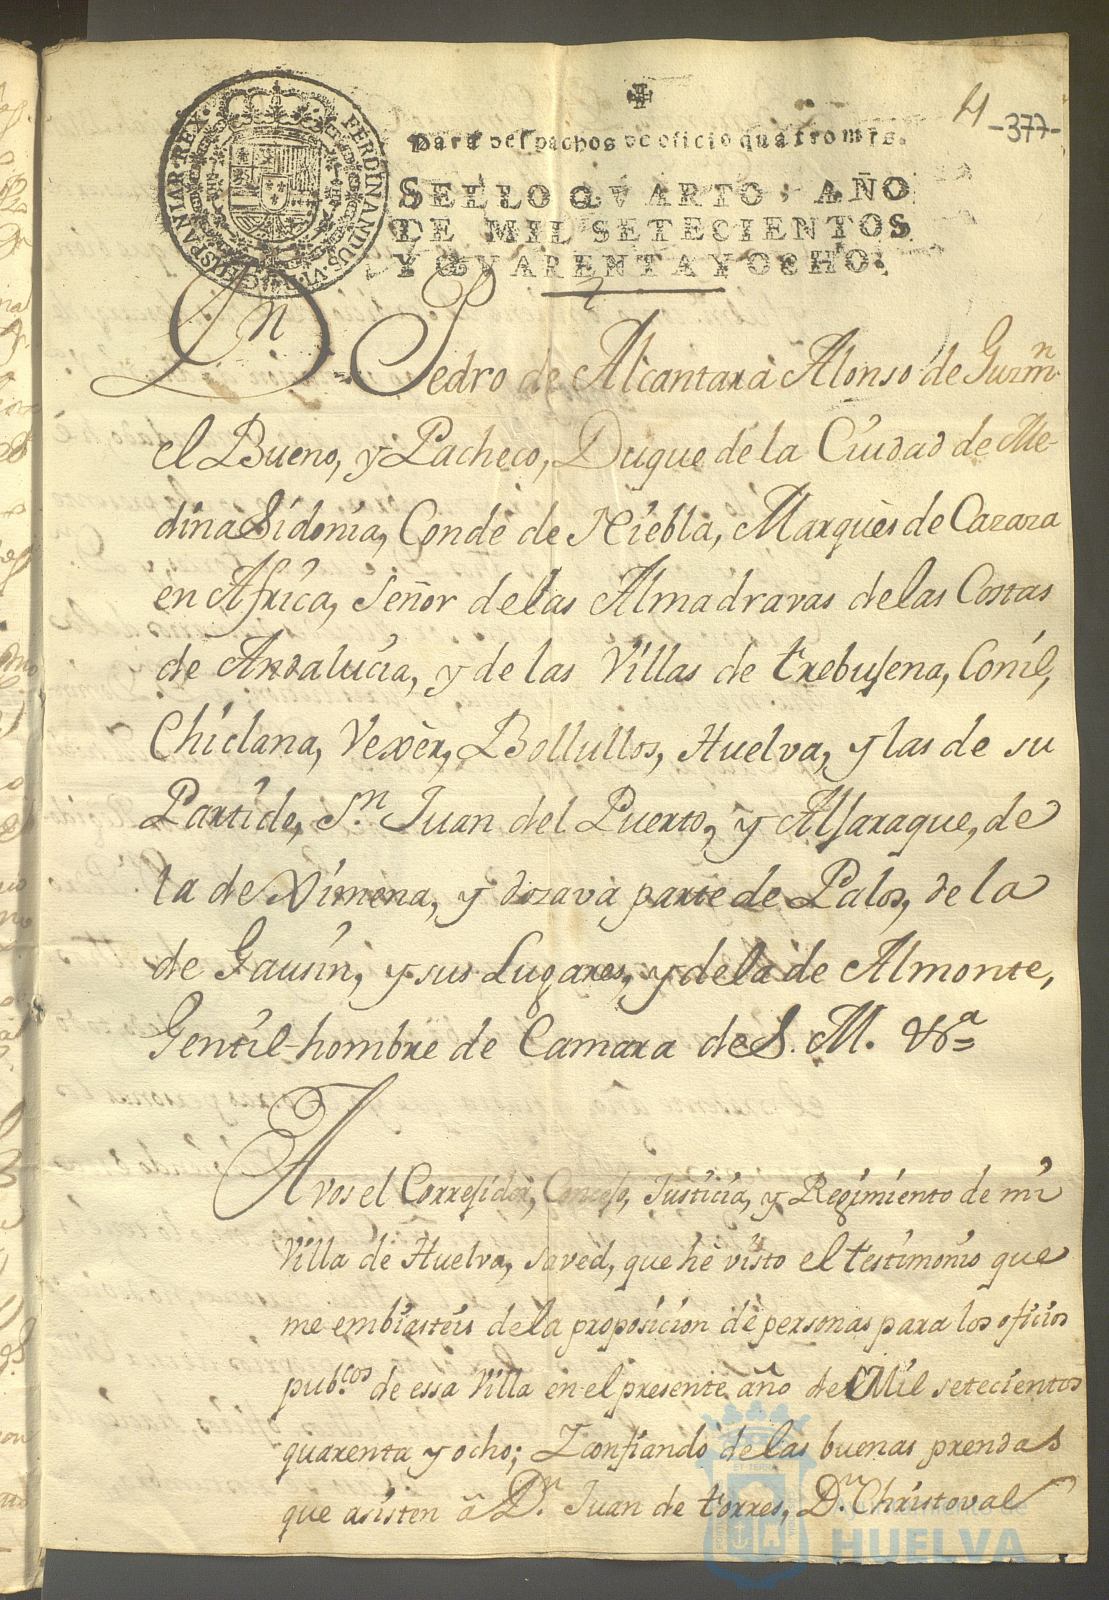 4
-377-
Para despachos de oficio quatro mrs.
SELLO QVARTO, AÑO
DE MIL SETECIENTOS
Y QVARENTA Y OCHO.
FERDINANDUS. VI. D. G. HISPANIAR. REX.
Dn Pedro de Alcantara Alonso de Guzmn
el Bueno, y Pacheco, Duque de la Ciudad de Me-
dina Sidonia, Conde de Niebla, Marquès de Cazaza
en Africa, Señor de las Almadravas de las Costas
de Andalucia, y de las Villas de trebujena, Conil,
Chiclana, Vexèr, Bollullos, Huelva, y las de su
Partido, Sn. Juan del Puerto, y Aljaraque, de
la de Ximena, y dozava parte de Palos, de la
de Gausin, y sus Lugares, y de la de Almonte,
Gentil-hombre de Camara de S. M. &a
A vos el Corregidor, Consejo, Justicia, y Regimiento de mi
Villa de Huelva, saved, que hè visto el testimonio que
me embiasteis de la proposicion de personas para los oficios
pubcos. de essa Villa en el presente año de Mil setecientos
quarenta y ocho; Y confiando de las buenas prendas
que asisten â Dn. Juan de torres, Dn. Christoval
Ayuntamiento de
HUELVA